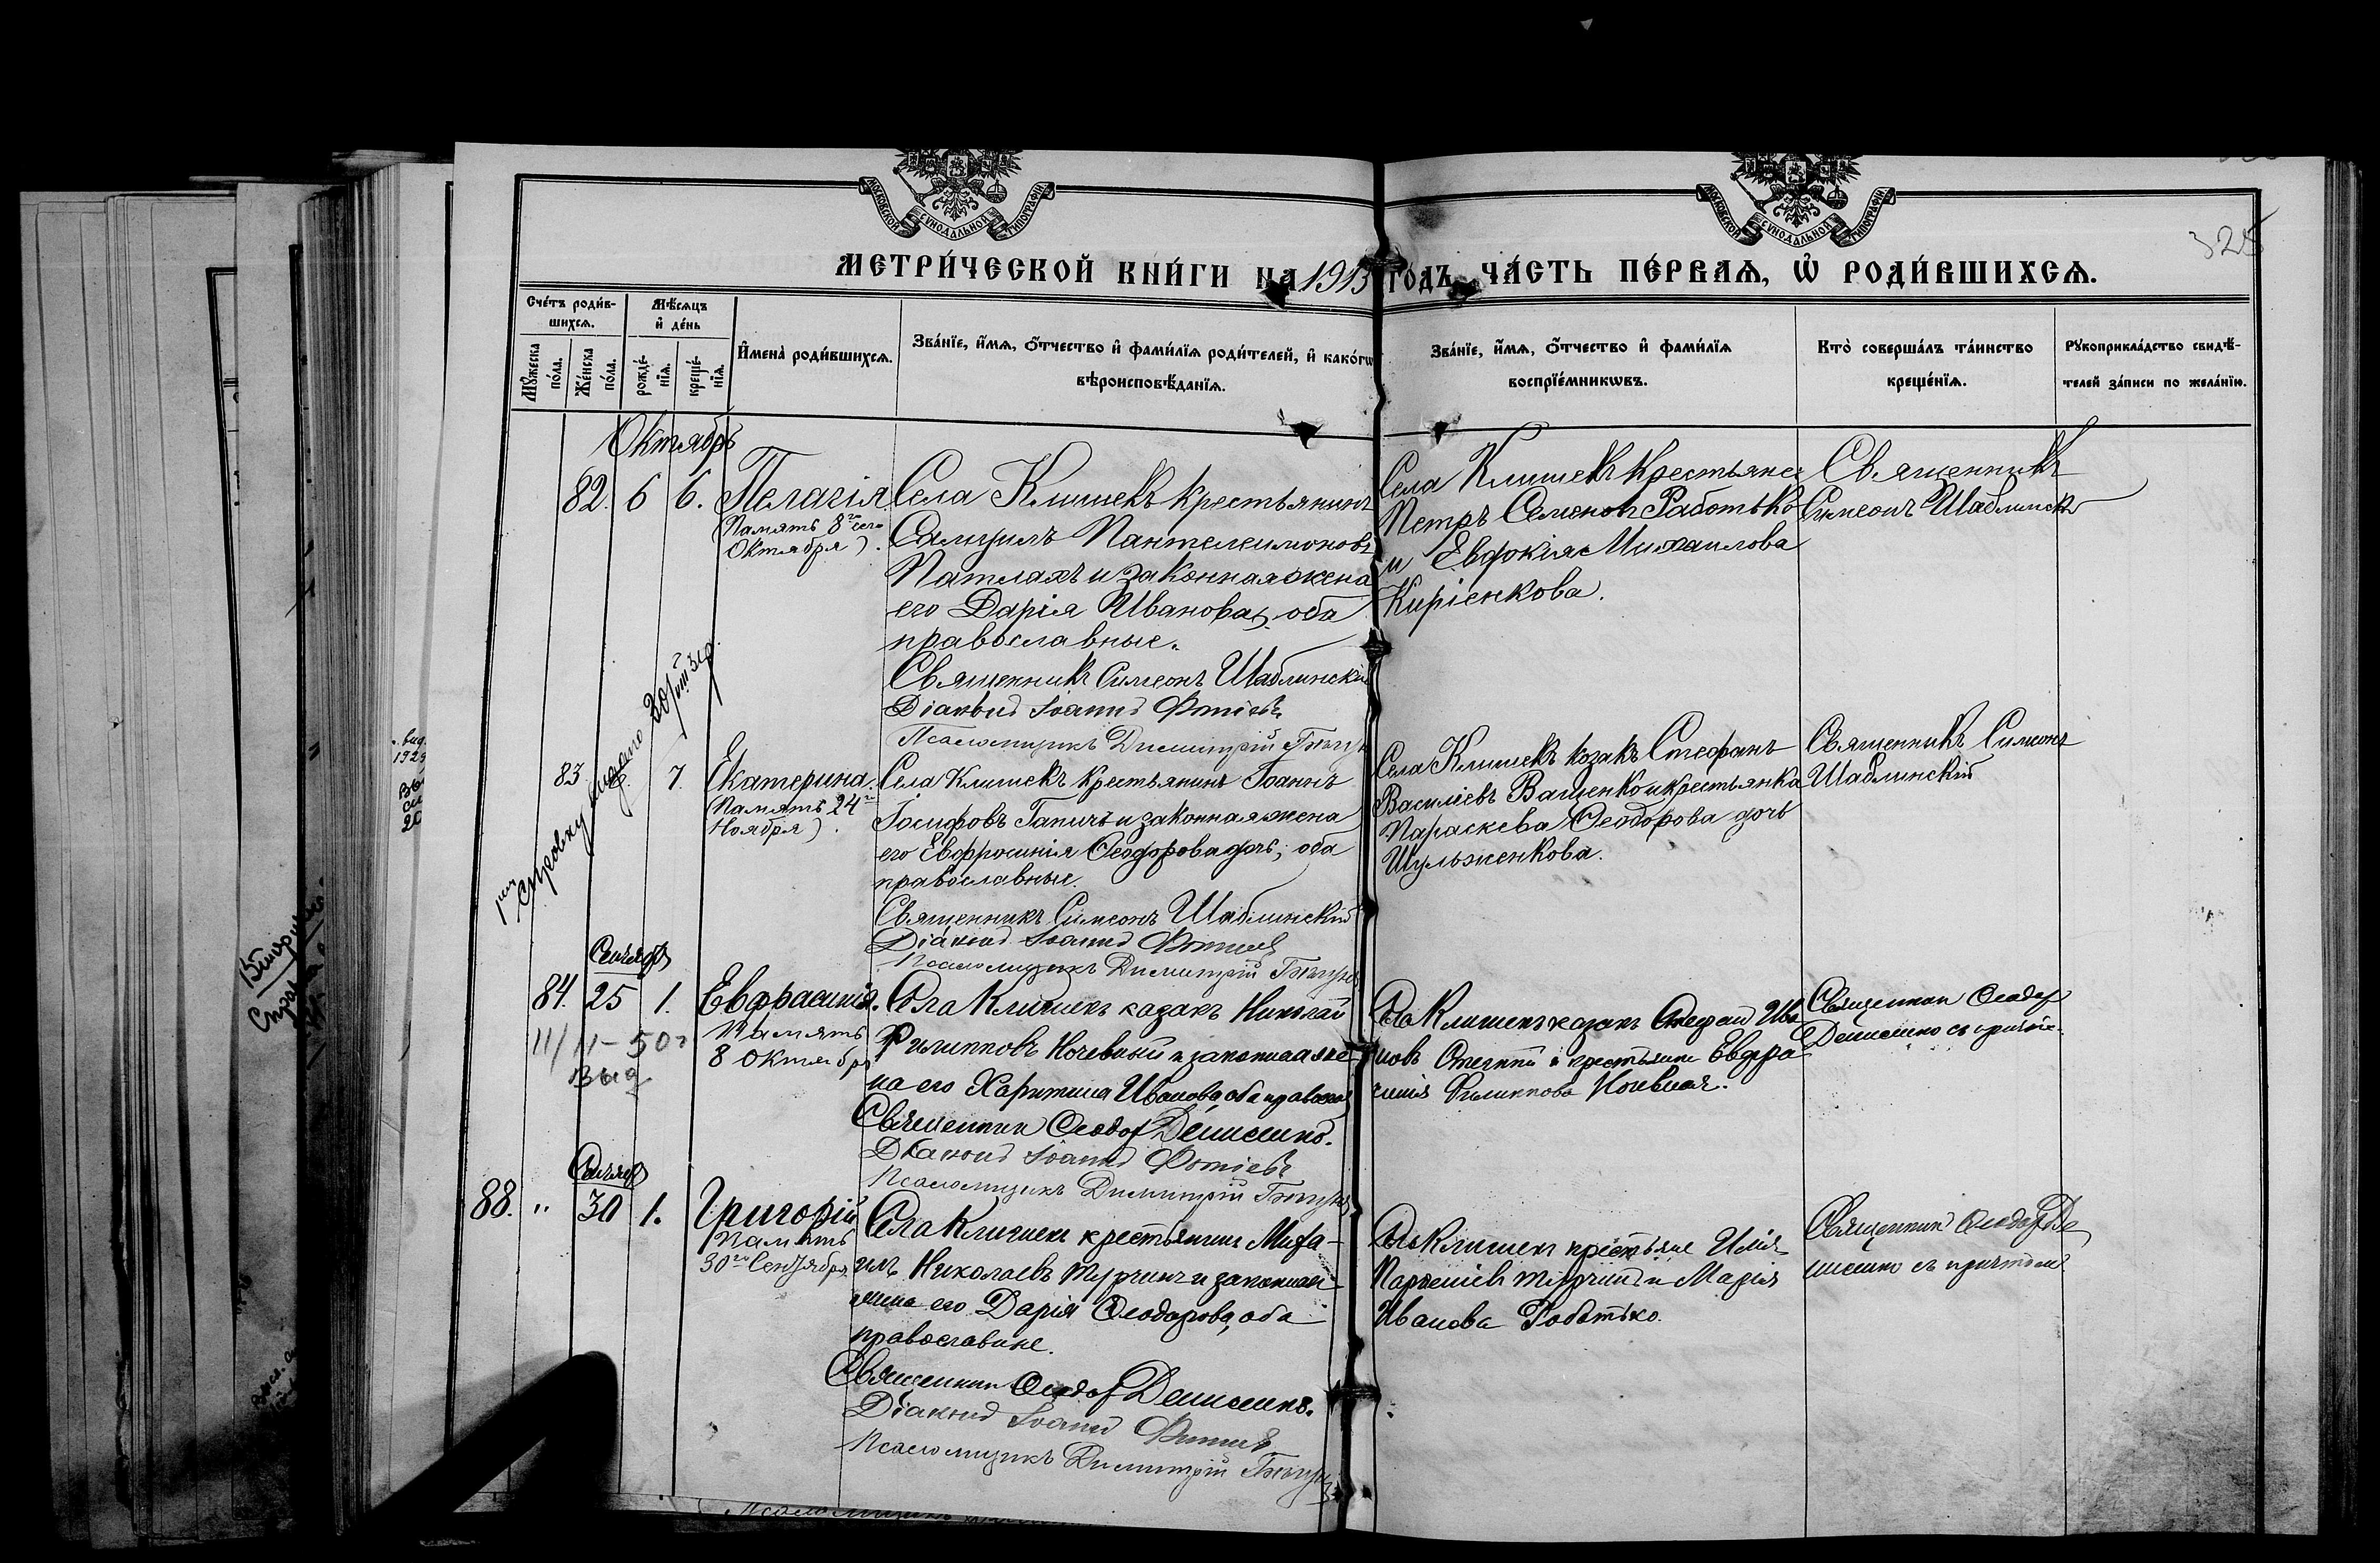 МОСКОВСКОЙ СУНОДАЛЬНОЙ ТИПОГРАФІИ
МОСКОВСКОЙ СУНОДАЛЬНОЙ ТИПОГРАФІИ
325
МЕТРИ́ЧЕСКОЙ КНИ́ГИ НА 1913 ГОДЪ, ЧА́СТЬ ПЕ́РВАѦ, Ѽ РОДИ́ВШИХСѦ.
Сче́тъ роди́в-
шихсѧ.
Мѣ́сѧцъ
и҆ де́нь
Мꙋ́жеска
по́ла.
Же́нска
по́ла.
рожде́-
нїѧ.
креще́-
нїѧ.
И҆мена̀ роди́вшихсѧ.
Зва́нїе, и҆́мѧ, ѻ҆́тчество и҆ фами́лїѧ роди́телей, и҆ како́гѡ
вѣроисповѣ́данїѧ.
Зва́нїе, и҆́мѧ, ѻ҆́тчество и҆ фами́лїѧ
воспрїе́мникѡвъ.
Кто̀ соверша́лъ та́инство
креще́нїѧ.
Рꙋкоприкла́дство свидѣ́-
телей за́писи по жела́нїю.
Октябрь
82. 6 6. Пелагія
(Память 8го сего
Октября).
Села Клишекъ крестьянинъ
Самуилъ Пантелеимоновъ
Патлахъ и законная жена
его Дарія Иванова, оба
православные.
Священникъ Симеонъ Шаблинскій
Діаконъ Іоаннъ Фотіевъ
Псаломщикъ Димитрій
Села Клишекъ крестьяне
Петръ Семеновъ Работько
и Евдокія Михаилова
Киріенкова.
Священникъ
Симеонъ Шаблинскій
справку
83 7. Екатерина.
(Память 24го
Ноября).
Села Клишекъ крестьянинъ Іоаннъ
Іосифовъ Гапичъ и законная жена
его Евфросинія Ѳеодорова дочь; оба
православные.
Священникъ Симеонъ Шаблинскій
Діаконъ Іоаннъ Фотіевъ
Псаломщикъ Димитрій
Села Клишекъ козакъ Стефанъ
Василіевъ Ващенко и крестьянка
Параскева Ѳеодорова дочь
Шульженкова.
Священникъ Симеонъ
Шаблинскій
Сентябрь
84. 25 1. Евфрасинія.
Память
8 Октября
11/11-50г
выд
Села Клишекъ казакъ Николай
Филипповъ Ночевный и законная же-
на его Харитина Иванова, оба правосл
Священникъ Ѳеодоръ
Діаконъ Іоаннъ Фотіевъ
Псаломщикъ Димитрій
Села Клишекъ казакъ Стефанъ Ива
новъ и крестьянка Евфра
синія Филиппова Ночевная.
Священникъ Ѳеодоръ
съ причтомъ
Сентябрь
88. " 30 1. Григорій
Память
30го Сентября
Села Клишекъ крестьянинъ Миха-
илъ Николаевъ Турчинъ и законная
жена его Дарія Ѳеодорова, оба
православные.
Священникъ Ѳеодоръ
Діаконъ Іоаннъ Фотіевъ
Псаломщикъ Димитрій
Села Клишекъ крестьяне Илія
Турчинъ и Марія
Иванова Роботько.
Священникъ Ѳеодоръ
съ причтомъ